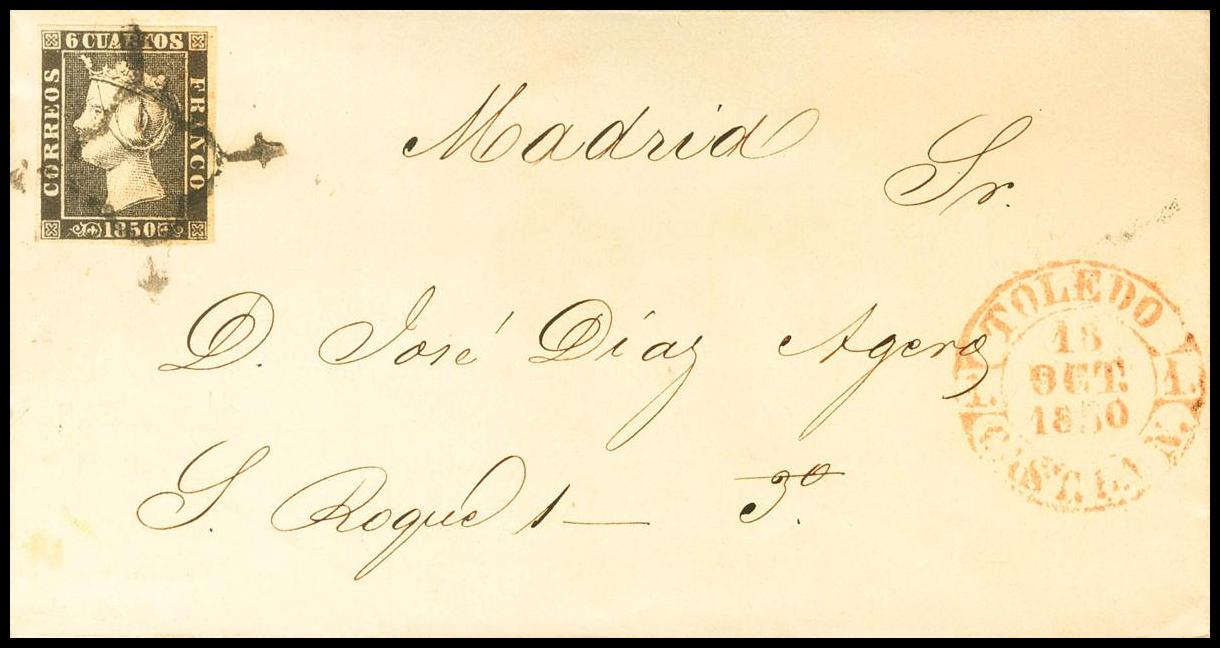 6 CUARTOS
CORREOS
FRANCO
1850
Madrid
Sr.
D. José Díaz Agero
S. Roque 1 — 3º
TOLEDO
18
OCT.
1850